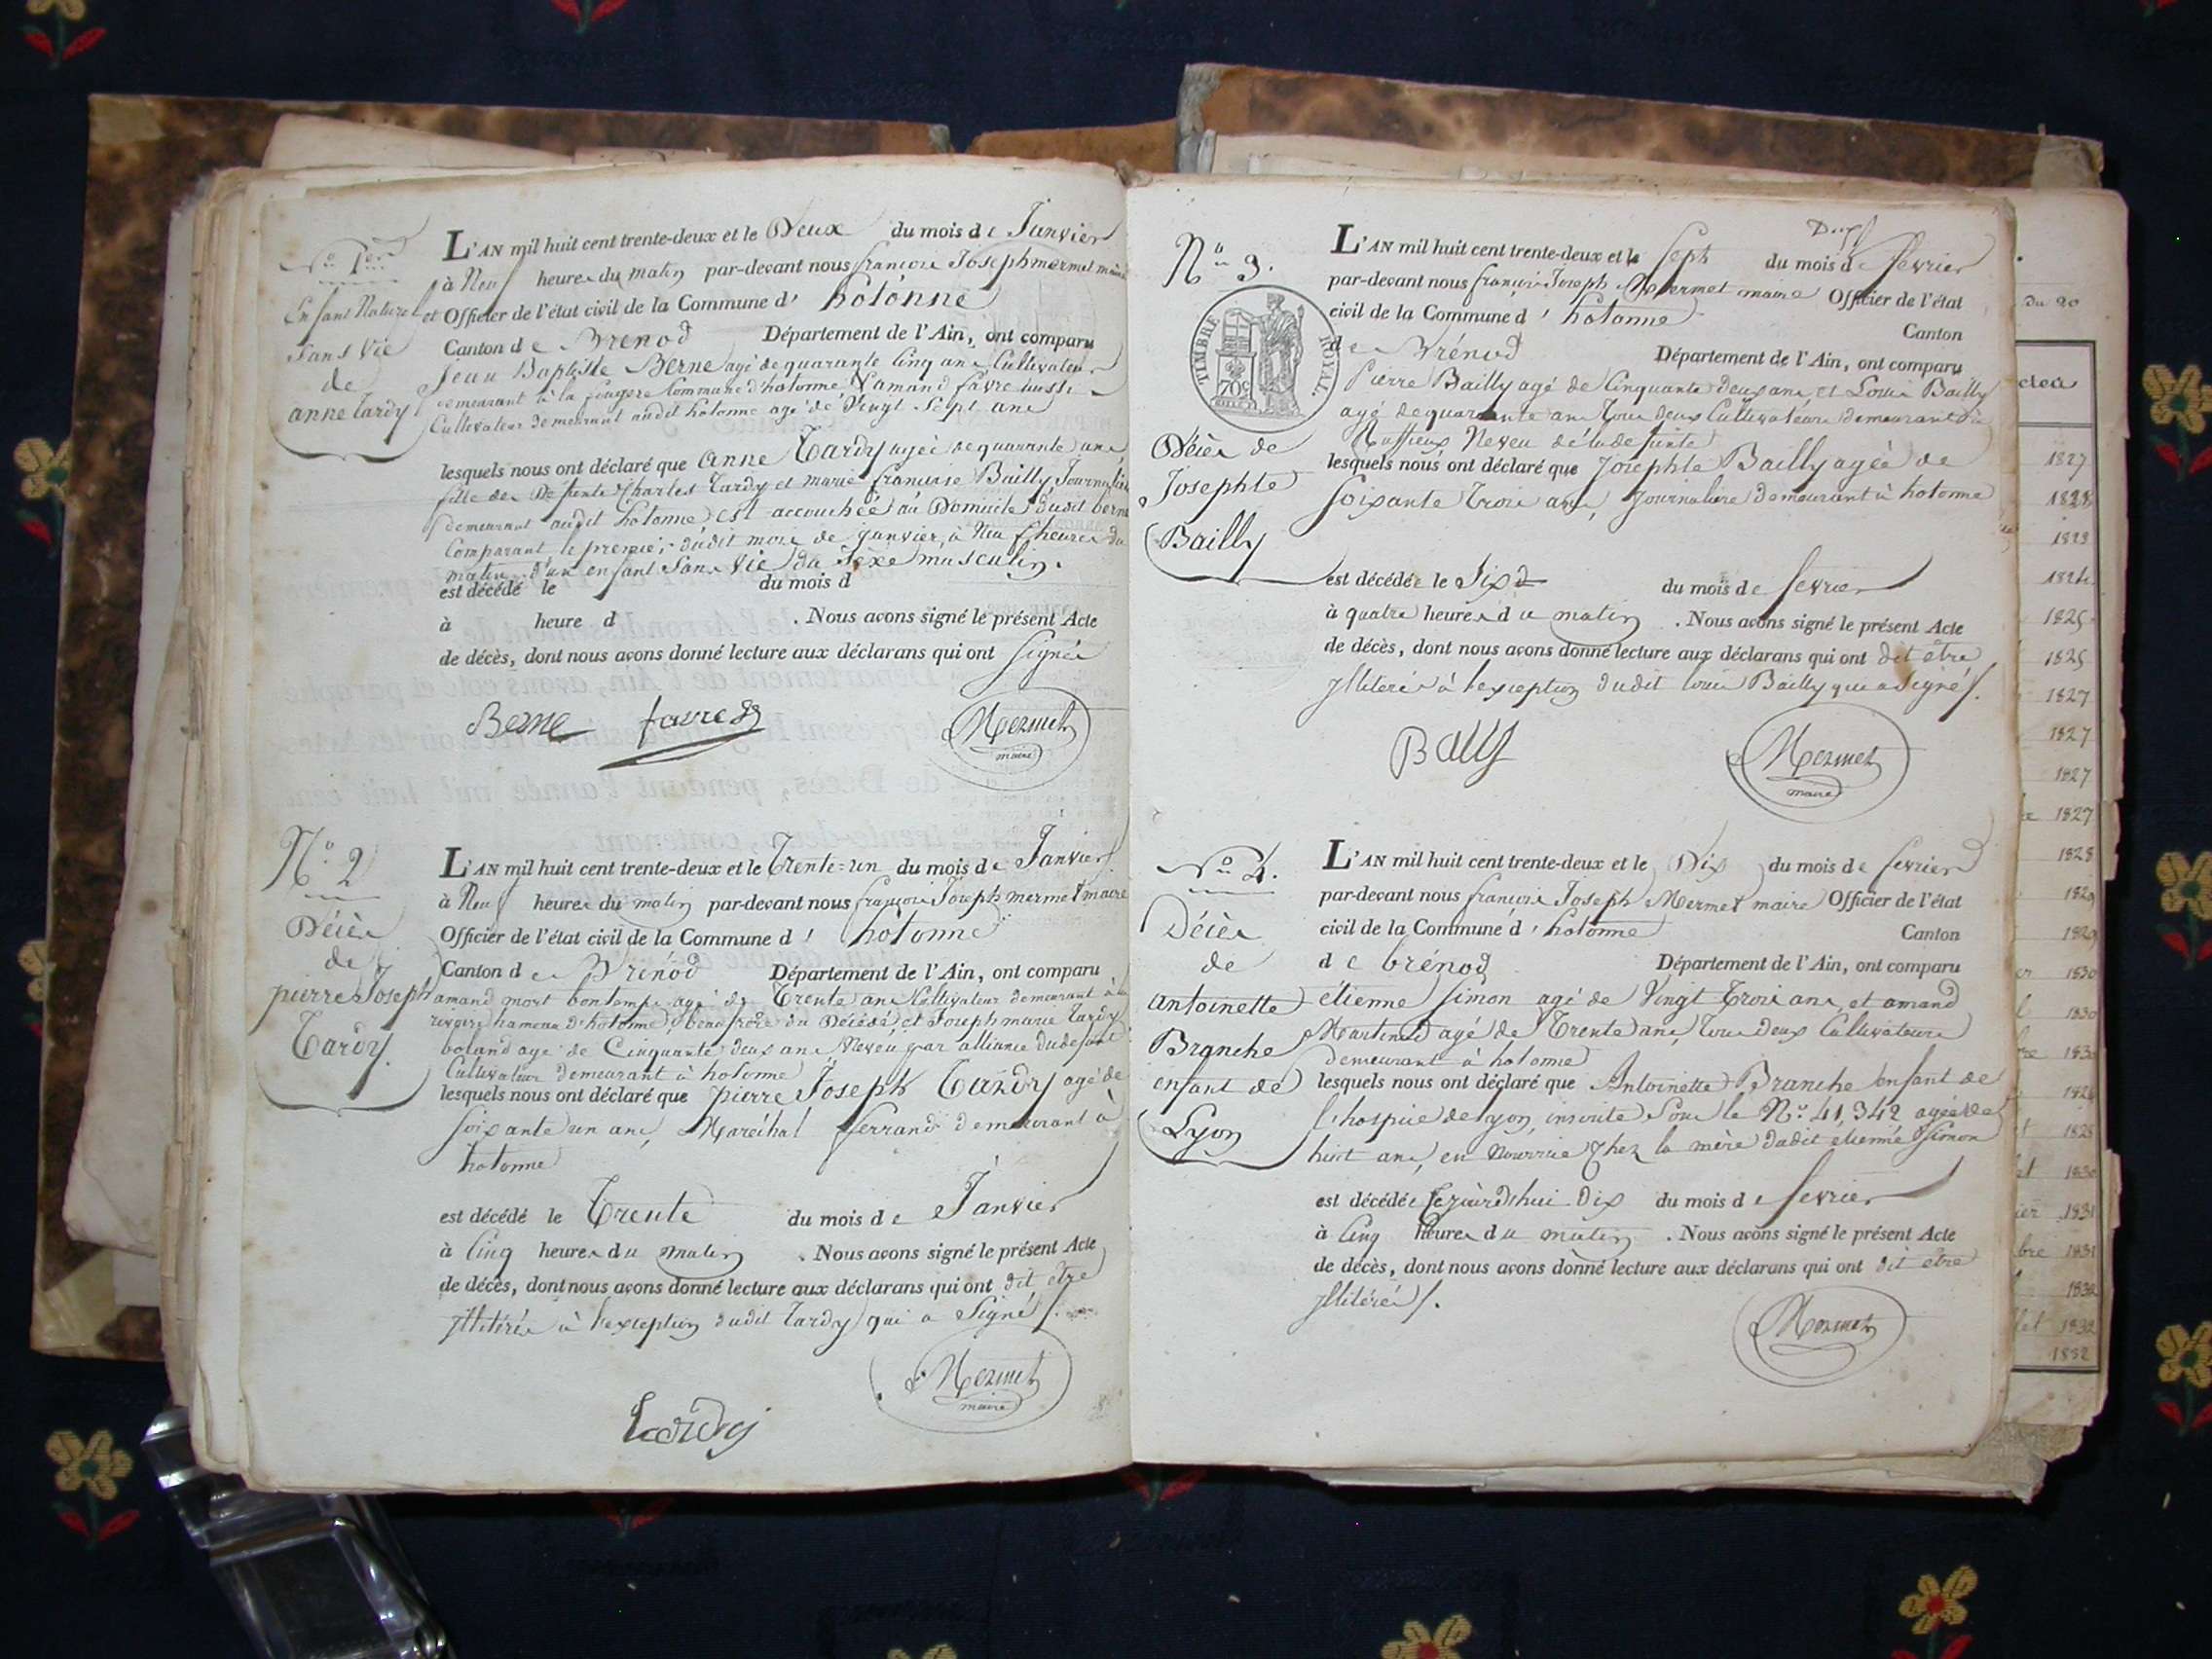 No 1er
Enfant Naturel
Sans Vie
de
anne Tardy
L'AN mil huit cent trente-deux et le Deux du mois de Janvier
à Neuf heures du matin par-devant nous françois Joseph mermet maire
et Officier de l'état civil de la Commune d' hotonne
Canton de Brenod Département de l'Ain, ont comparu
Jean Baptiste Berne agé de quarante Cinq ans Cultivateur
demeurant à la Commune d'hotonne & amand favre aussi
Cultivateur demeurant audit hotonne agé de Vingt Sept ans
lesquels nous ont déclaré que Anne Tardy agée de quarante ans
fille de Defunts Charles Tardy et marie francoise Bailly, Journalière
demeurant audit hotonne est accouchée au Domicile dudit berne
Comparant le premier dudit mois de janvier, à Neuf heures du
matin d'un enfant Sans Vie du Sexe masculin.
est décédé le du mois d
à heure d . Nous avons signé le présent Acte
de décès, dont nous avons donné lecture aux déclarans qui ont Signés
Berne favre Mermet
maire
No 2
Décès
de
pierre Joseph
Tardy.
L'AN mil huit cent trente-deux et le Trente=un du mois de Janvier
à Neuf heures du matin par-devant nous françois Joseph mermet maire
Officier de l'état civil de la Commune d' hotonne
Canton de Brénod Département de l'Ain, ont comparu
amand mort bontemps agé de Trente ans Cultivateur demeurant à la
rivoire hameau d'hotonne, beaufrère du Décédé, et Joseph marie Tardy
boland agé de Cinquante deux ans Neveu par alliance dudefunt
Cultivateur demeurant à hotonne
lesquels nous ont déclaré que pierre Joseph Tardy agé de
soixante un ans, Maréchal ferrand demeurant à
hotonne
est décédé le Trente du mois de Janvier
à Cinq heures du matin . Nous avons signé le présent Acte
de décès, dont nous avons donné lecture aux déclarans qui ont dit être
Illitérés à l'exception dudit Tardy qui a Signé
Mermet
maire
Tardy
No 3.
TIMBRE ROYAL.
70c
Décès de
Josephte
Bailly
L'AN mil huit cent trente-deux et le Sept du mois de fevrier
par-devant nous françois Joseph Mermet maire Officier de l'état
civil de la Commune d' hotonne Canton
de Brénod Département de l'Ain, ont comparu
Pierre Bailly agé de Cinquante deux ans et Louis Bailly
agé de quarante ans Tous deux Cultivateurs demeurant à
Ruffieux Neveu de la defunte
lesquels nous ont déclaré que Josephte Bailly agée de
soixante Trois ans, Journalière demeurant à hotonne
est décédée le Six du mois de fevrier
à quatre heures du matin . Nous avons signé le présent Acte
de décès, dont nous avons donné lecture aux déclarans qui ont dit être
Illiterés à l'exception dudit louis Bailly qui a Signé
Bally Mermet
maire
No 4.
Décès
de
antoinette
Branche
enfant de
Lyon
L'AN mil huit cent trente-deux et le Dix du mois de fevrier
par-devant nous francois Joseph Mermet maire Officier de l'état
civil de la Commune d' hotonne Canton
de brénod Département de l'Ain, ont comparu
étienne Simon agé de Vingt Trois ans, et amand
Martinod agé de Trente ans, Tous deux Cultivateurs
demeurant à hotonne
lesquels nous ont déclaré que Antoinette Branche enfant de
l'hospice de lyon, inscrite Sous le No 41,342 agée de
huit ans, en Nourrice chez la mère dudit etienne Simon
est décédée Cejourd'hui Dix du mois de fevrier
à Cinq heures du matin . Nous avons signé le présent Acte
de décès, dont nous avons donné lecture aux déclarans qui ont dit être
Illitérés.
Mermet
du 20
1827
1828
1823
1824
1825
1825
1827
1827
1827
1827
1828
1829
1829
1830
1830
1830
1828
1830
1831
1831
1832
1832
1832